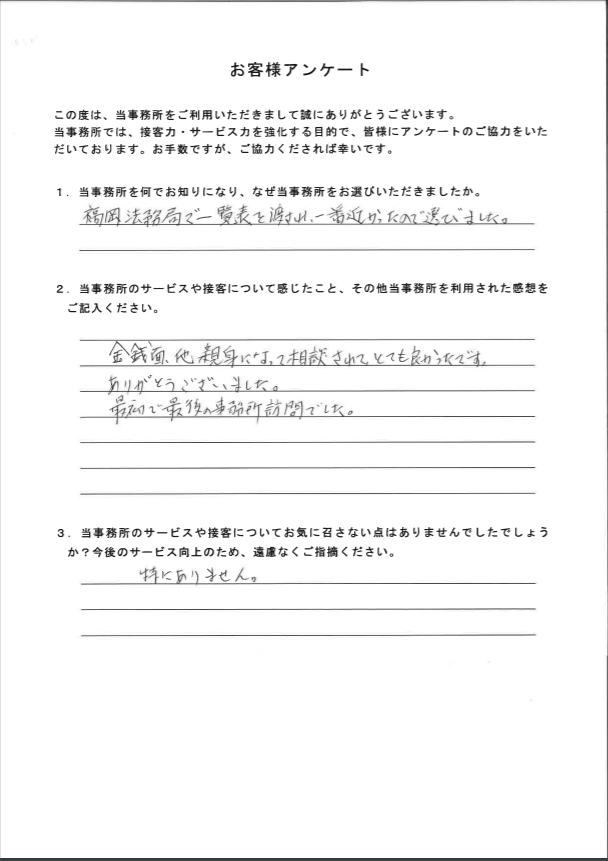 お客様アンケート
この度は、当事務所をご利用いただきまして誠にありがとうございます。
当事務所では、接客力・サービス力を強化する目的で、皆様にアンケートのご協力をいた
だいております。お手数ですが、ご協力くだされば幸いです。
１．当事務所を何でお知りになり、なぜ当事務所をお選びいただきましたか。
福岡法務局で一覧表を渡され、一番近かったので選びました。
２．当事務所のサービスや接客について感じたこと、その他当事務所を利用された感想を
ご記入ください。
金銭面、他親身になって相談されて、とても良かったです。
ありがとうございました。
最初で最後の事務所訪問でした。
３．当事務所のサービスや接客についてお気に召さない点はありませんでしたでしょう
か？今後のサービス向上のため、遠慮なくご指摘ください。
特にありません。